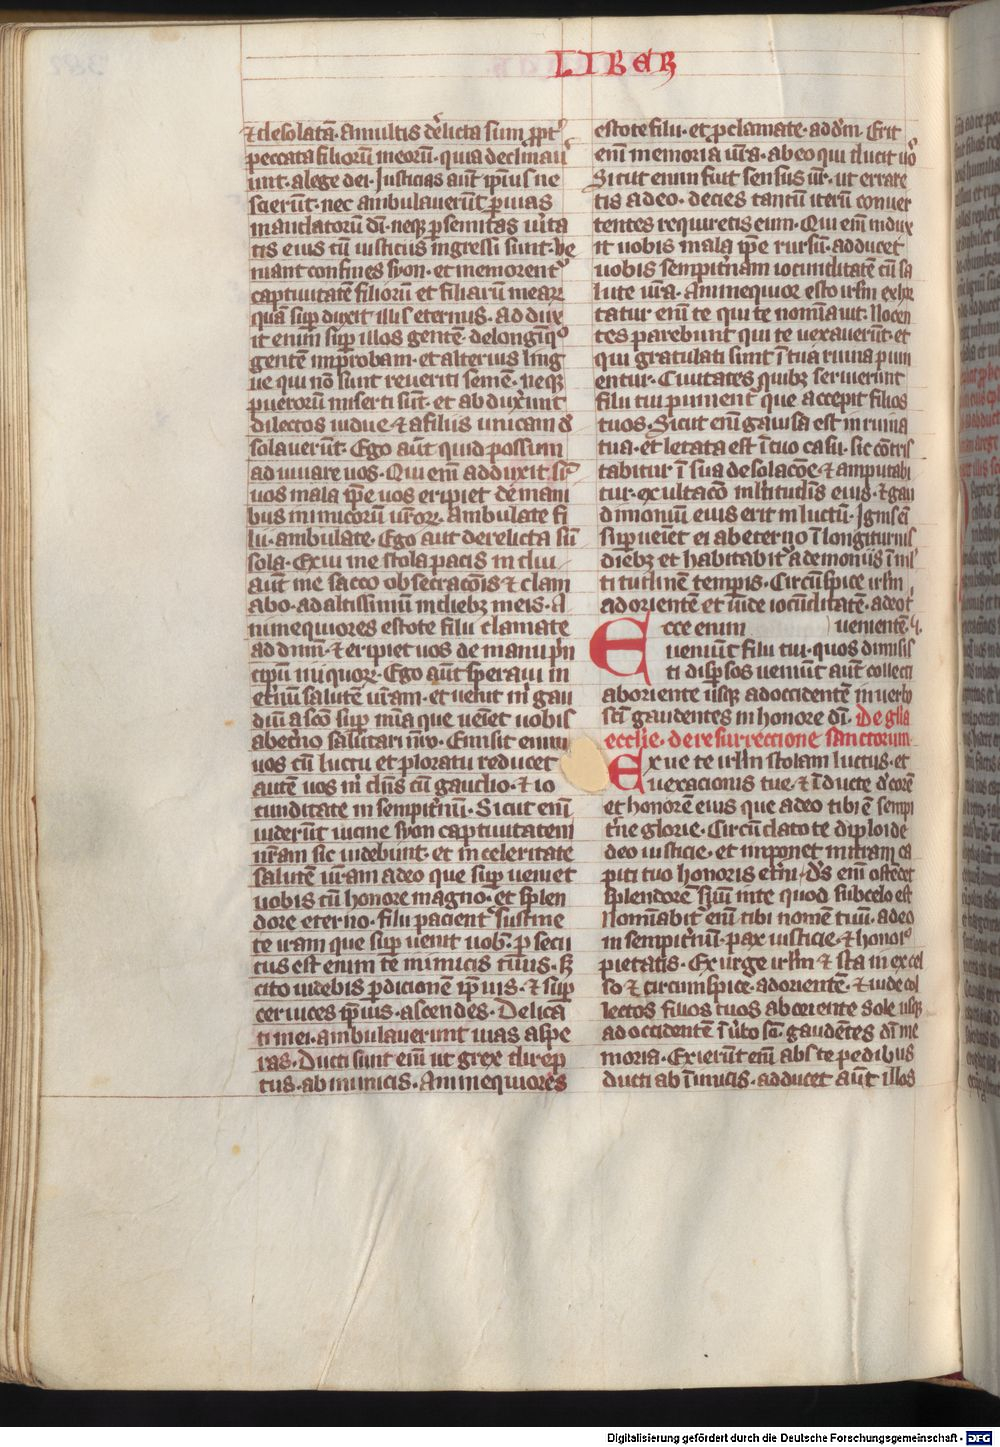 LIBER
⁊ desolatā. Amultis dr̄elicta sum p̱pt᷑
peccata filiorū meorū. quia declinau᷑
unt. alege dei. Iusticias aūt ip̄ius ne
scierūt. nec ambulauerūt ꝑ uias
mandatorū dī. neqꝫ ꝑ semitas u᷑ita
tis eius cū iusticiis ingressi sunt. ve
niant confines syon. et memorent᷑
captiuitatē filiorū et filiarū mearꝝ
quā suꝑ duxit illis eternus. Ad dux
it enim suꝑ illos gentē. delonginq͛
gentē improbam. et alterius ling
ue qui nō sunt reueriti senem. neqꝫ
puerorū miserti sūt. et abduxerunt
dilectos uidue. ⁊ a filiis unicam d͛
solauerūt. Ego aūt quid possum
ad iuuare uos. Qui em̄ adduxit suꝑ
uos mala ip̄e uos eripiet de mani
bus inimicorū ur̄orꝝ. Ambulate fi
lii. ambulate. Ego aut derelicta sū
sola. Exui me stola pacis indui
aūt me sacco obsecracōis ⁊ clam
abo. ad altissimū indiebꝫ meis. A
nimequiores estote filii clamate
ad dnm̄. ⁊ eripiet uos de manu pn̄
cipū iniquorꝝ. Ego aūt speraui in
et̄nū salutē ur̄am. et uenit m̄ gau
diū a scō suꝑ mīa que ueniet uobis
abet̄no salutari nr̄o. Emisit enim
uos cū luctu et ploratu reducet
autē uos m̄ dn̄s cū gaudio. ⁊ io
cunditate in sempit̄nū. Sicut enī
uiderūt uicine syon captiuitatem
ur̄am sic uidebunt. et in celeritate
salutē ur̄am adeo que suꝑ ueniet
uobis cū honore magno. et splen
dore eterno. filii pacient᷑ sustine
te iram que suꝑ uenit uob̄. ꝑ secu
tus est enim te inimicus tuus. sꝫ
cito uidebis ꝑdicionē ip̄ius. ⁊ suꝑ
ceruices ip̄ius. ascendes. Delica
ti mei. ambulauerunt uias aspe
ras. Ducti sunt em̄ ut grex direp
tus. ab inimicis. Animequiores
estote filii. et ꝓclamate. ad dm̄. Erit
enī memoria ur̄a. abeo qui ducit uos
Sicut enim fuit sensus ur̄. ut errare
tis adeo. decies tantū iterū conuer
tentes requiretis eum. Qui enī indux
it uobis mala ip̄e rursū. adducet
uobis sempit̄nam iocunditatē cū sa
lute ur̄a. Animequior esto irlm̄ exhor
tatur enī te qui te nominauit. Nocen
tes peribunt qui te uexauerūt. et
qui gratulati sunt ī tua ruina puni
entur. Ciuitates quibꝫ seruierunt
filii tui punient᷑ que accepit filios
tuos. Sicut enī gauisa est in ruina
tua. et letata est ī tuo casu. sic cōtris
tabitur ī sua desolacōe ⁊ amputabi
tur. exultacō multitudīs eius. ⁊ gau
dimoniū eius erit in luctū. Ignis em̄
suꝑ ueīet ei abeterno ī longiturnis
diebꝫ et habitabit᷑ ademoniis ī ml̄
titudinē tempīs. Circūspice irlm̄
ad orientē et uide iocūditatē. adeo t͛
Ecce enim uenientē.
ueniūt filii tui. quos dimisis
ti disꝑsos ueniūt aūt collecti
aboriente usqꝫ adoccidentē in uerbo
scī gaudentes in honore dī. De gl̄ia
ecclīe. de resurreccione sanctorum.
Exue te irlm̄ stolam luctus. et
uexacionis tue. ⁊ īducte d͛corē
et honorē eius que adeo tibi ē sempi
t̄ne glorie. Circūdato te diploide
deo iusticie. et imponet mitram ca
piti tuo honoris et̄ni. d̄s enī ostēdet
splendorē suū inte quod subcelo est
Nominabit᷑ enī tibi nomē tuū. adeo
in sempit̄nū. pax iusticie. ⁊ honor
pietatis. Exurge irlm̄ ⁊ sta in excel
so ⁊ circumspice. adorientē. ⁊ uide col
lectos filios tuos aboriente sole usqꝫ
ad occidentē ī ūbo sc̄i. gaudētes dī me
moria. Exierūt enī abs te pedibus
ducti ab īimicis. adducet aūt illos
Digitalisierung gefördert durch die Deutsche Forschungsgemeinschaft - DFG